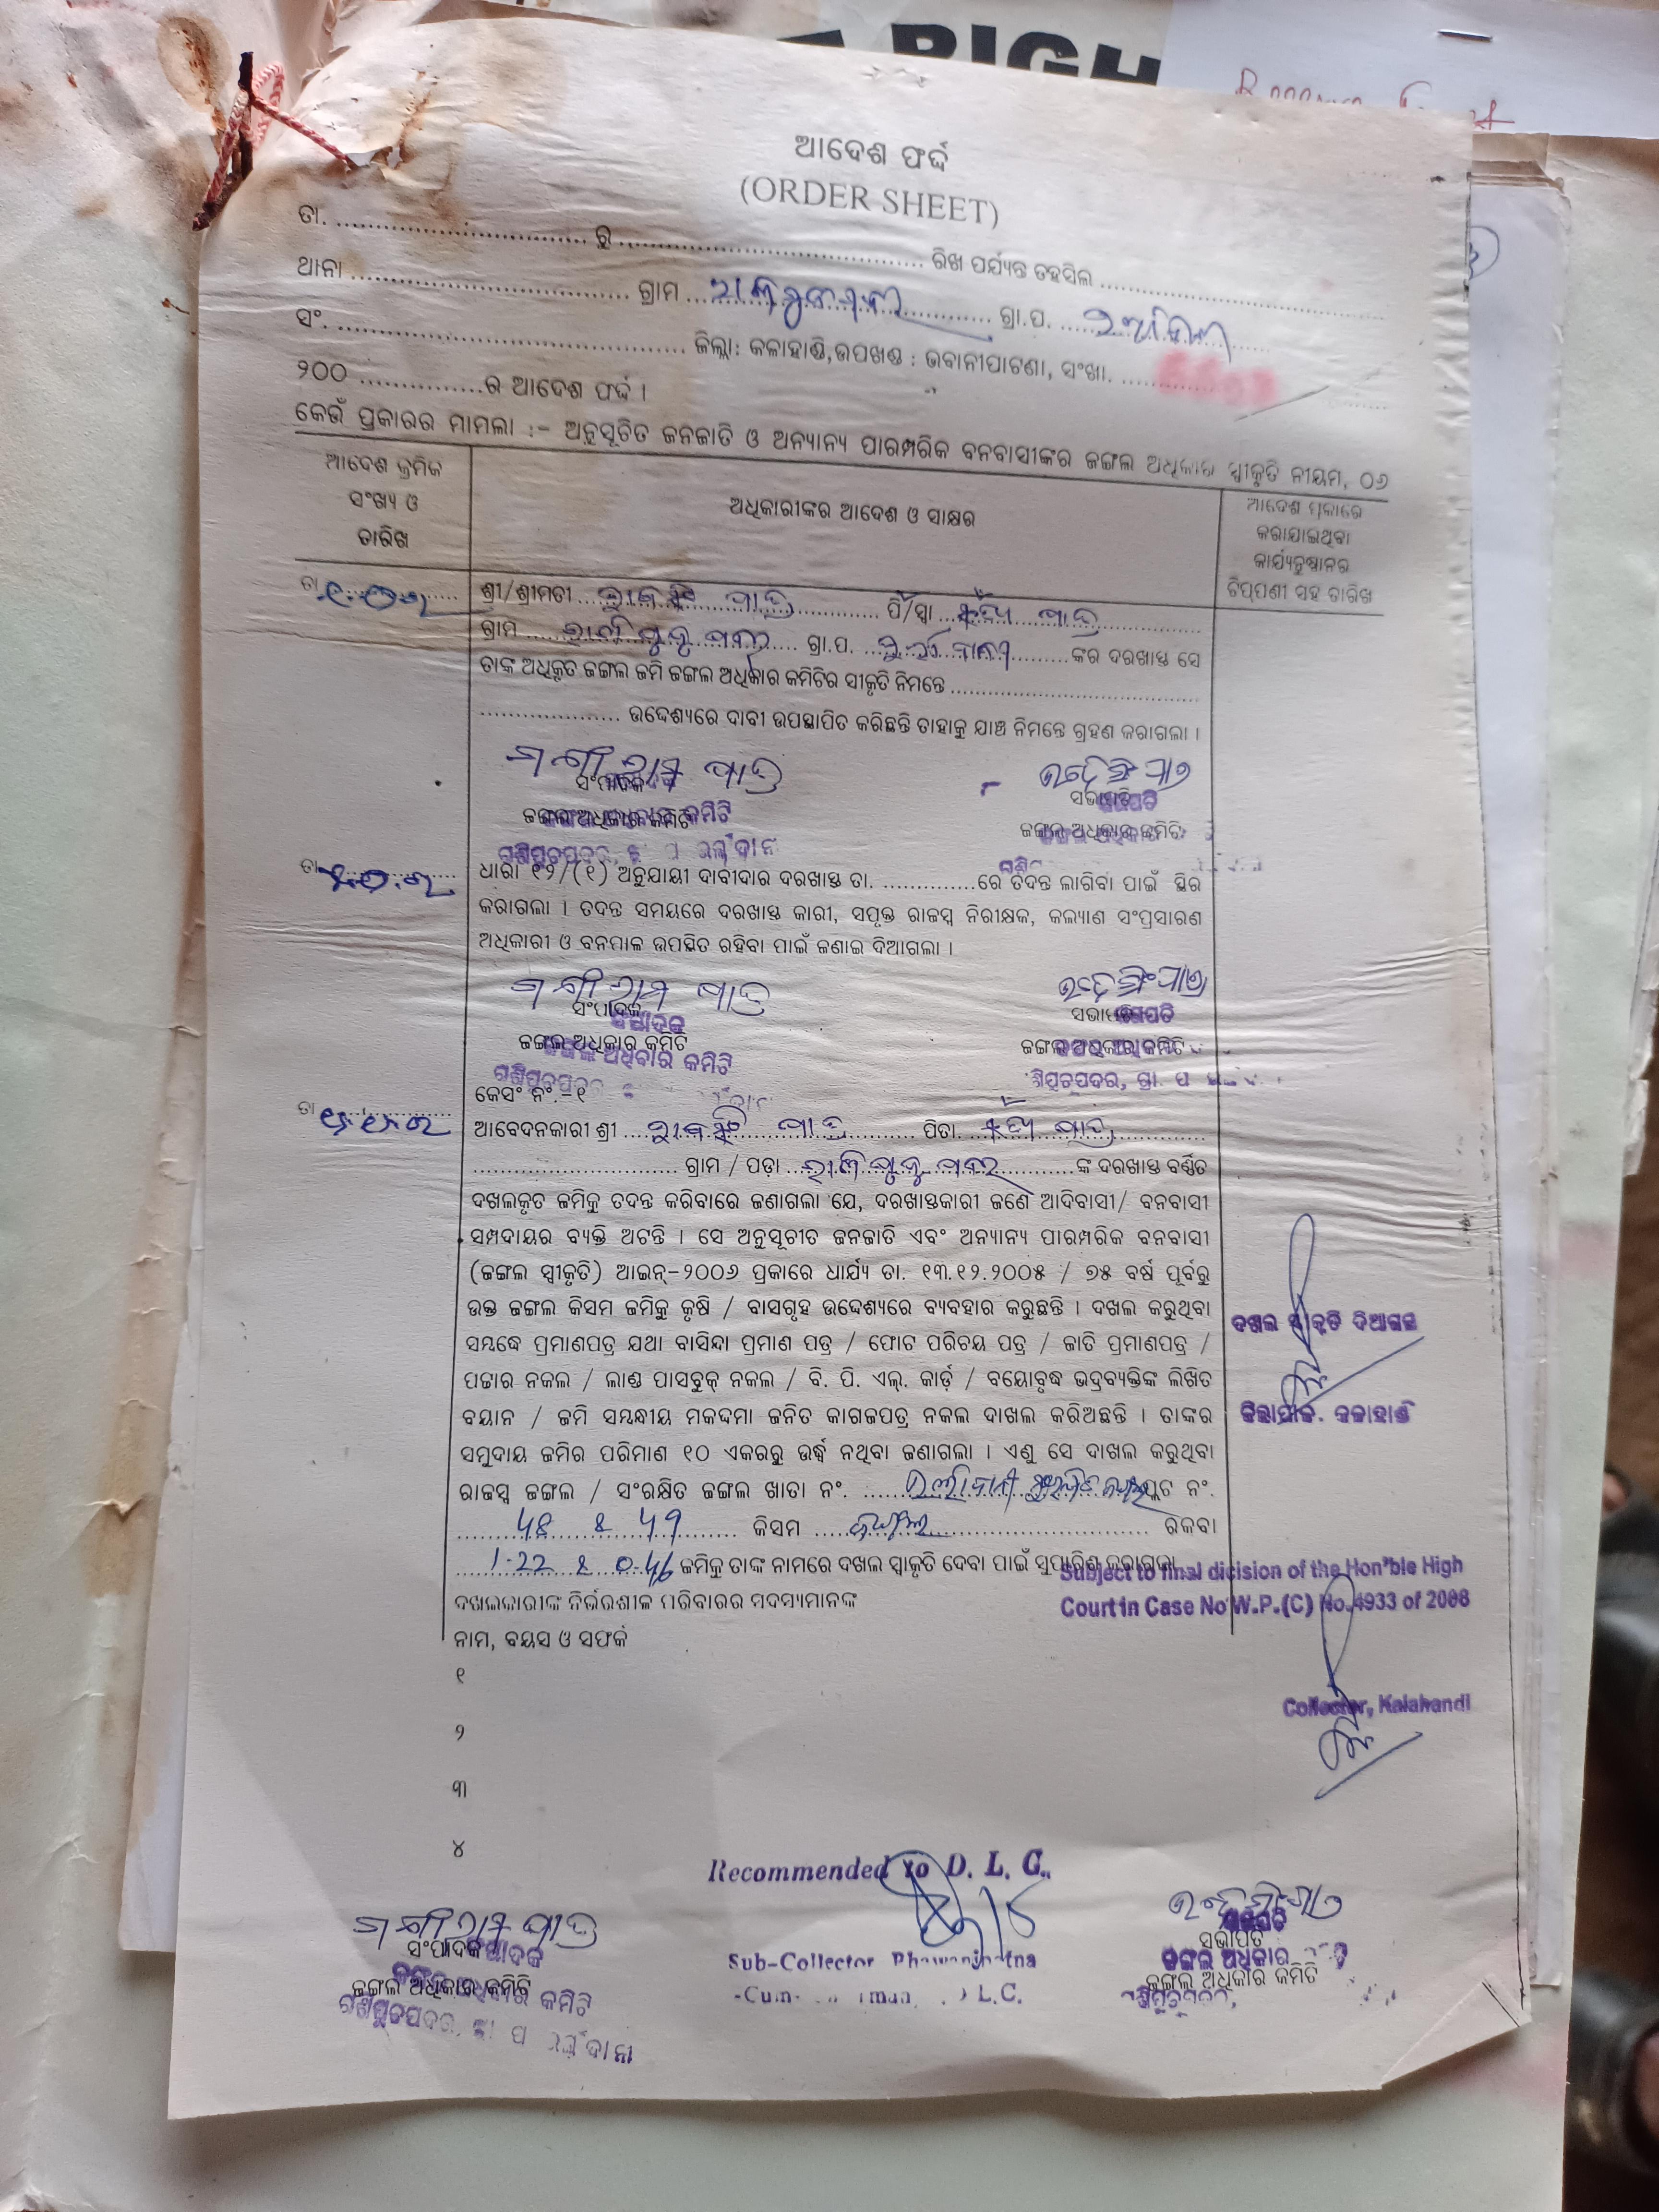 RIGH
ଆଦେଶ ଫର୍ଦ୍ଦ
(ORDER SHEET)
ତା. ........................ ରୁ ........................ ରିଖ ପର୍ଯ୍ୟନ୍ତ ତହସିଲ ........................
ଥାନା ........................ ଗ୍ରାମ ........................ ଗ୍ରା.ପ. ........................
ସଂ. ........................ ଜିଲ୍ଲା: କଳାହାଣ୍ଡି,ଉପଖଣ୍ଡ : ଭବାନୀପାଟଣା, ସଂଖା. ............
୨୦୦ ...............ର ଆଦେଶ ଫର୍ଦ୍ଦ ।
କେଉଁ ପ୍ରକାରର ମାମଲା :- ଅନୁସୂଚିତ ଜନଜାତି ଓ ଅନ୍ୟାନ୍ୟ ପାରମ୍ପରିକ ବନବାସୀଙ୍କର ଜଙ୍ଗଲ ଅଧିକାର ସ୍ୱୀକୃତି ନୀୟମ, ୦୬
ଆଦେଶ କ୍ରମିକ
ସଂଖ୍ୟ ଓ
ତାରିଖ
ଅଧିକାରୀଙ୍କର ଆଦେଶ ଓ ସାକ୍ଷର
ଆଦେଶ ପ୍ରକାରେ
କରାଯାଇଥିବା
କାର୍ଯ୍ୟନୁଷ୍ଠାନର
ଟିପ୍ପଣୀ ସହ ତାରିଖ
ତା
ଶ୍ରୀ/ଶ୍ରୀମତୀ ............ ପାତ୍ର ............ ପି/ସ୍ୱା ............ ପାତ୍ର
ଗ୍ରାମ ........................ ଗ୍ରା.ପ. ........................ ଙ୍କର ଦରଖାସ୍ତ ସେ
ତାଙ୍କ ଅଧିକୃତ ଜଙ୍ଗଲ ଜମି ଜଙ୍ଗଲ ଅଧିକାର କମିଟିର ସୀକୃତି ନିମନ୍ତେ ........................
.................... ଉଦ୍ଦେଶ୍ୟରେ ଦାବୀ ଉପସ୍ଥାପିତ କରିଛନ୍ତି ତାହାକୁ ଯାଞ୍ଚ ନିମନ୍ତେ ଗ୍ରହଣ କରାଗଲା ।
ସଂପାଦକ
ସଭାପତି
ଜଙ୍ଗଲ ଅଧିକାର କମିଟି
ଜଙ୍ଗଲ ଅଧିକାର କମିଟି
ତା
ଧାରା ୧୨/(୧) ଅନୁଯାୟୀ ଦାବୀଦାର ଦରଖାସ୍ତ ତା. ..............ରେ ତଦନ୍ତ ଲାଗିବା ପାଇଁ ସ୍ଥିର
କରାଗଲା । ତଦନ୍ତ ସମୟରେ ଦରଖାସ୍ତ କାରୀ, ସପୃକ୍ତ ରାଜସ୍ୱ ନିରୀକ୍ଷକ, କଲ୍ୟାଣ ସଂପ୍ରସାରଣ
ଅଧିକାରୀ ଓ ବନପାଳ ଉପସ୍ଥିତ ରହିବା ପାଇଁ ଜଣାଇ ଦିଆଗଲା ।
ସଂପାଦକ
ସଭାପତି
ଜଙ୍ଗଲ ଅଧିକାର କମିଟି
ଜଙ୍ଗଲ ଅଧିକାର କମିଟି
କେସଂ ନଂ.-୧
ତା
ଆବେଦନକାରୀ ଶ୍ରୀ ............ ପାତ୍ର ............ ପିତା ............ ପାତ୍ର
........................ ଗ୍ରାମ / ପଡ଼ା ........................ ଙ୍କ ଦରଖାସ୍ତ ବର୍ଣ୍ଣିତ
ଦଖଲକୃତ ଜମିକୁ ତଦନ୍ତ କରିବାରେ ଜଣାଗଲା ଯେ, ଦରଖାସ୍ତକାରୀ ଜଣେ ଆଦିବାସୀ/ ବନବାସୀ
ସମ୍ପଦାୟର ବ୍ୟକ୍ତି ଅଟନ୍ତି । ସେ ଅନୁସୂଚୀତ ଜନଜାତି ଏବଂ ଅନ୍ୟାନ୍ୟ ପାରମ୍ପରିକ ବନବାସୀ
(ଜଙ୍ଗଲ ସ୍ୱୀକୃତି) ଆଇନ୍-୨୦୦୬ ପ୍ରକାରେ ଧାର୍ଯ୍ୟ ତା. ୧୩.୧୨.୨୦୦୫ / ୭୫ ବର୍ଷ ପୂର୍ବରୁ
ଉକ୍ତ ଜଙ୍ଗଲ କିସମ ଜମିକୁ କୃଷି / ବାସଗୃହ ଉଦ୍ଦେଶ୍ୟରେ ବ୍ୟବହାର କରୁଛନ୍ତି । ଦଖଲ କରୁଥିବା
ସମ୍ୱନ୍ଧେ ପ୍ରମାଣପତ୍ର ଯଥା ବାସିନ୍ଦା ପ୍ରମାଣ ପତ୍ର / ଫୋଟ ପରିଚୟ ପତ୍ର / ଜାତି ପ୍ରମାଣପତ୍ର /
ପଟ୍ଟାର ନକଲ / ଲାଣ୍ଡ ପାସବୁକ୍ ନକଲ / ବି. ପି. ଏଲ୍. କାର୍ଡ଼ / ବୟୋବୃଦ୍ଧ ଭଦ୍ରବ୍ୟକ୍ତିଙ୍କ ଲିଖିତ
ବୟାନ / ଜମି ସମ୍ୱନ୍ଧୀୟ ମକଦ୍ଦମା ଜନିତ କାଗଜପତ୍ର ନକଲ ଦାଖଲ କରିଅଛନ୍ତି । ତାଙ୍କର
ସମୁଦାୟ ଜମିର ପରିମାଣ ୧୦ ଏକରରୁ ଉର୍ଦ୍ଧ୍ୱ ନଥିବା ଜଣାଗଲା । ଏଣୁ ସେ ଦାଖଲ କରୁଥିବା
ରାଜସ୍ୱ ଜଙ୍ଗଲ / ସଂରକ୍ଷିତ ଜଙ୍ଗଲ ଖାତା ନଂ. ........................ ପ୍ଲଟ ନଂ.
............ କିସମ ........................ ରକବା
1.22 & 0.46 ଜମିକୁ ତାଙ୍କ ନାମରେ ଦଖଲ ସ୍ୱୀକୃତି ଦେବା ପାଇଁ ସୁପାରିଶ କରାଗଲା
ଦଖଲକାରୀଙ୍କ ନିର୍ଭରଶୀଳ ପରିବାରର ସଦସ୍ୟମାନଙ୍କ
ନାମ, ବୟସ ଓ ସଫର୍କ
୧
୨
୩
୪
ଦଖଲ ସ୍ୱୀକୃତି ଦିଆଗଲା
ଜିଲ୍ଲାପାଳ. କଳାହାଣ୍ଡି
Subject to final dicision of the Hon'ble High
Court in Case No W.P.(C) No.4933 of 2008
Collector, Kalahandi
Recommended to D. L. C.
Sub-Collector Bhawanipatna
ସଂପାଦକ
ଜଙ୍ଗଲ ଅଧିକାର କମିଟି
ସଭାପତି
ଜଙ୍ଗଲ ଅଧିକାର କମିଟି